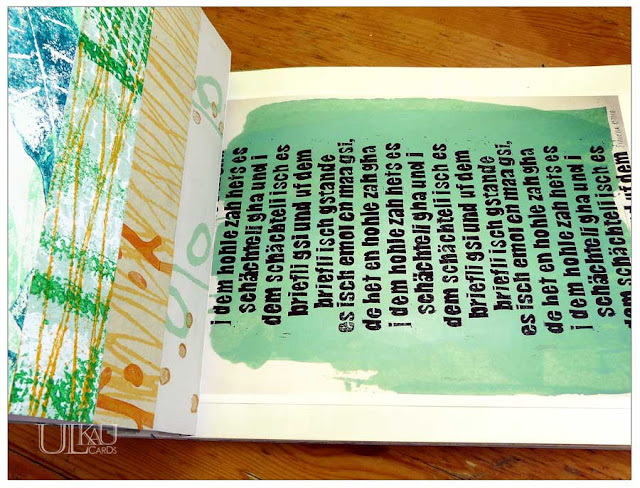 i dem hohle zah hets es
schächteli gha und i
dem schächteli isch es
briefli gsi und uf dem
briefli isch gstande
es isch emol en maa gsi,
de het en hohle zah gha
i dem hohle zah hets es
schächteli gha und i
dem schächteli isch es
briefli gsi und uf dem
briefli isch gstande
es isch emol en maa gsi,
de het en hohle zah gha
i dem hohle zah hets es
schächteli gha und i
dem schächteli isch es
uf dem
ULKAU
CARDS